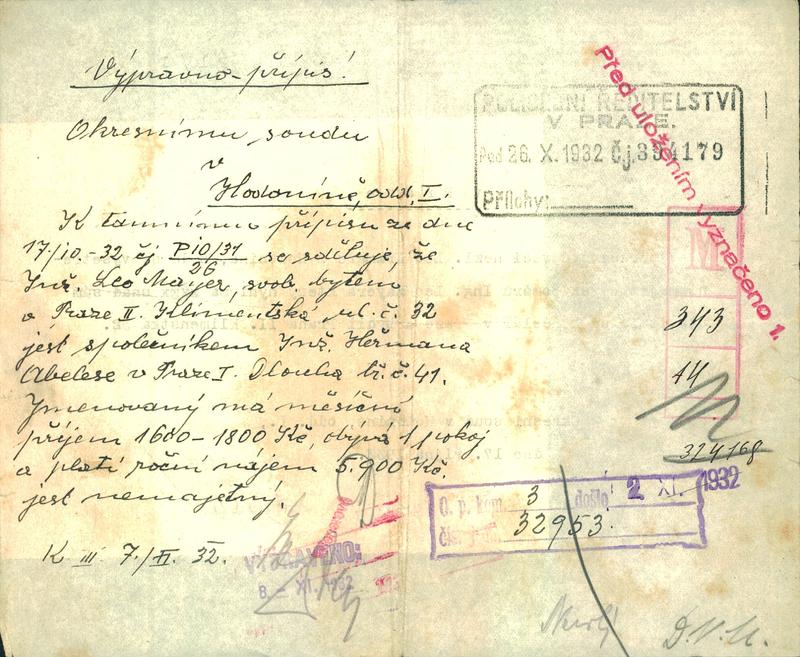 Výpravna-přípis!
Okresnímu soudu
v
Hodoníně, odd. I.
K tamnímu přípisu ze dne
17/10.-32 čj P10/31
26
se sděluje, že
Inž. Leo Mayer, svob. bytem
v Praze II. Klimentská ul. č. 32
jest společníkem Inž. Heřmana
Abelese v Praze I. Dlouhá tř. č. 41.
Jmenovaný má měsíční
příjem 1600-1800 Kč, obývá 1 pokoj
a platí roční nájem 5.900 Kč.
jest nemajetný.
K III 7./XI. 32.
POLICEJNÍ ŘEDITELSTVÍ
V PRAZE.
Pod 26. X. 1932 Čj. 394179
Přílohy:
Před uložením vyznačeno 1.
M
343
44
324168
O. p. kom. 3 došlo 2 XI. 1932
32953.
VYPRAVENO:
8 - XI. 1932